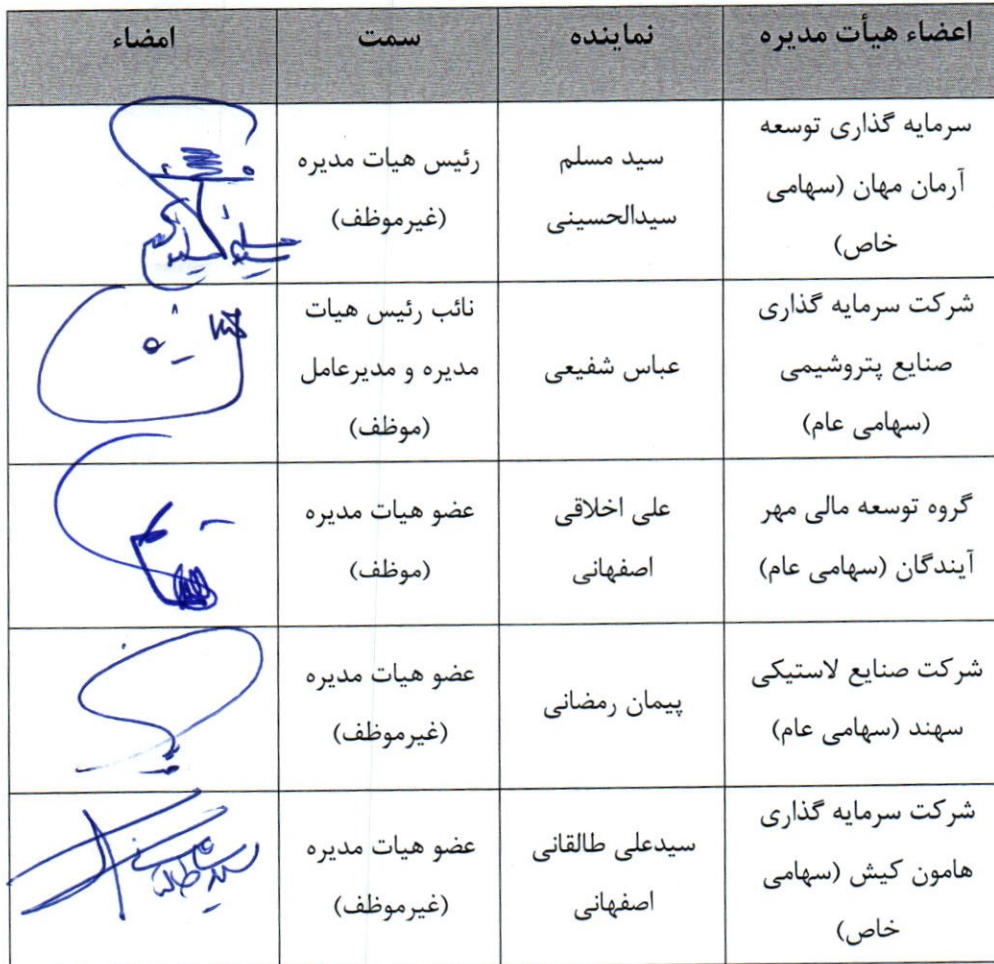 اعضاء هیأت مدیره	نماینده	سمت	امضاء
سرمایه گذاری توسعه
آرمان مهان (سهامی
خاص)
سید مسلم
سیدالحسینی
رئیس هیات مدیره
(غیرموظف)
شرکت سرمایه گذاری
صنایع پتروشیمی
(سهامی عام)
عباس شفیعی
نائب رئیس هیات
مدیره و مدیرعامل
(موظف)
گروه توسعه مالی مهر
آیندگان (سهامی عام)
علی اخلاقی
اصفهانی
عضو هیات مدیره
(موظف)
شرکت صنایع لاستیکی
سهند (سهامی عام)
پیمان رمضانی
عضو هیات مدیره
(غیرموظف)
شرکت سرمایه گذاری
هامون کیش (سهامی
خاص)
سیدعلی طالقانی
اصفهانی
عضو هیات مدیره
(غیرموظف)